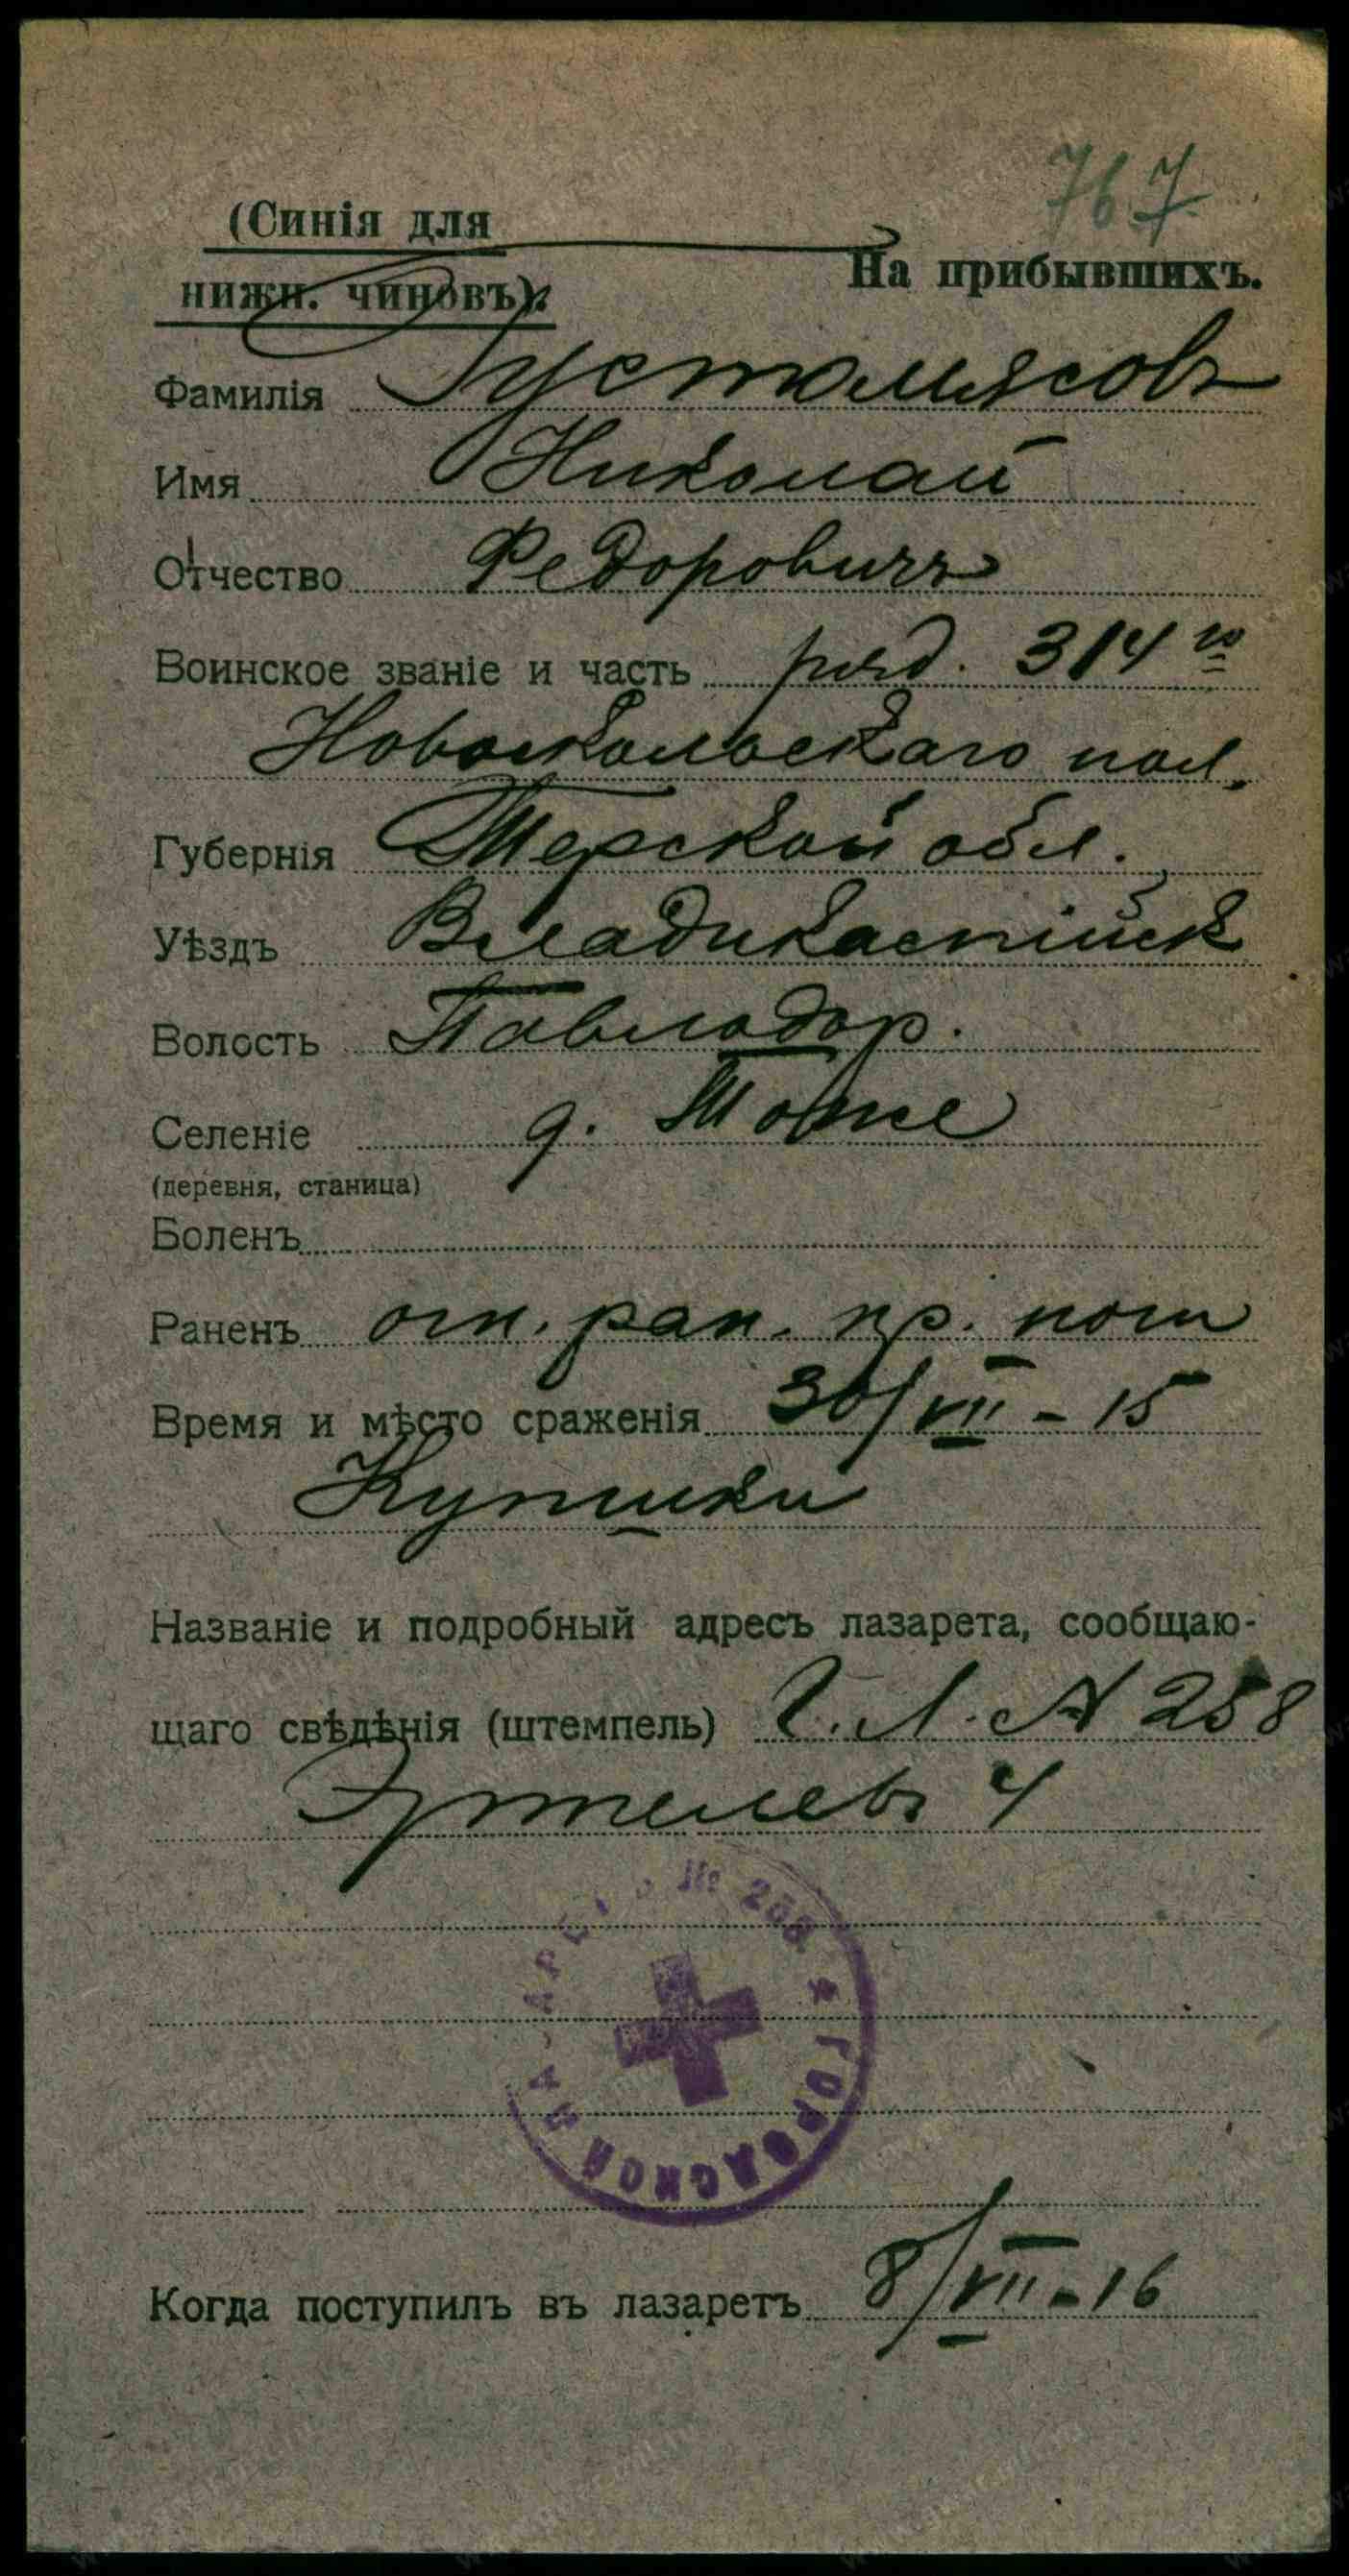 767
(Синія для
На прибывшихъ.
нижн. чиновъ).
Фамилія Густомясовъ
Имя Николай
Отчество Федоровичъ
Воинское званіе и часть ряд. 314 го
Новооскольскаго пол.
Губернія Терской обл.
Уѣздъ Владикаспійск
Волость Павлодор.
Селеніе д. Тоже
(деревня, станица)
Боленъ
Раненъ огн. ран. пр. ноги
Время и мѣсто сраженія 30/VII - 15
Купишки
Названіе и подробный адресъ лазарета, сообщаю-
щаго свѣдѣнія (штемпель) Г. Л. № 258
Эртелевъ 4
ГОРОДСКОЙ ЛАЗАРЕТЪ № 258
Когда поступилъ въ лазаретъ 8/VII - 16